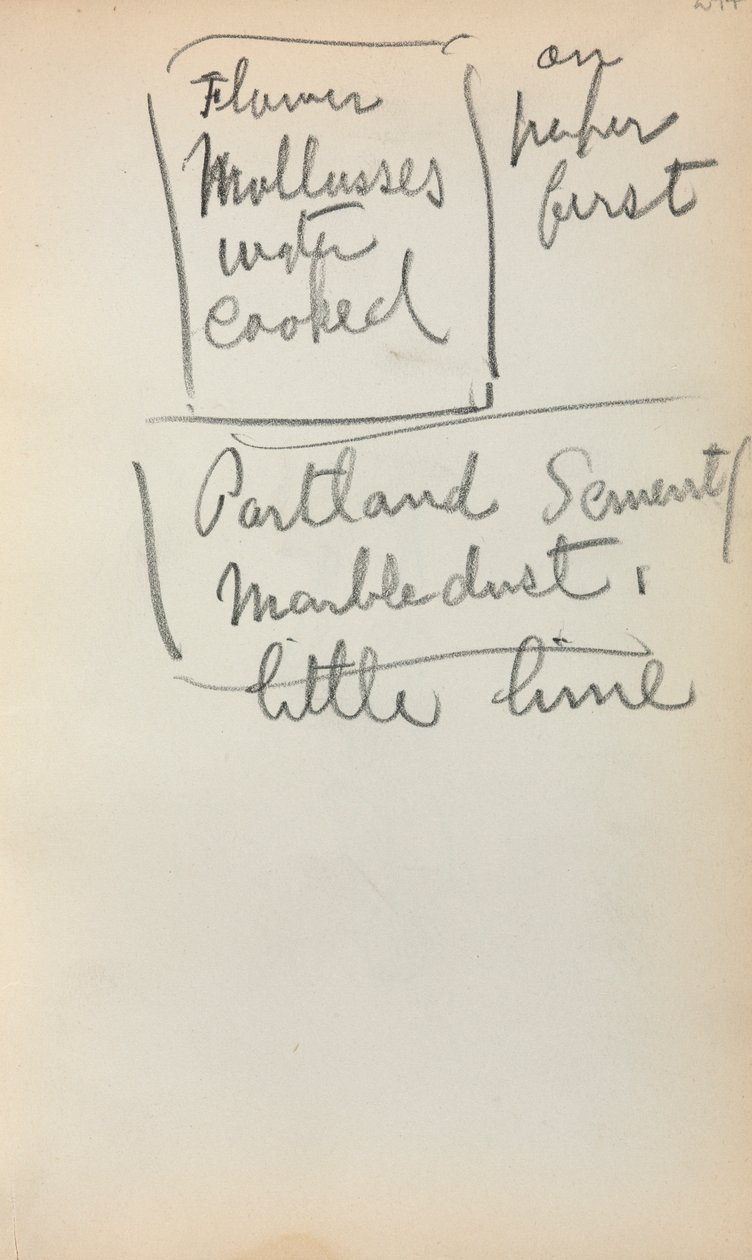 Flower
Mollusses
water
cooked
on
paper
first
Partland Sement
Marbledust,
little lime